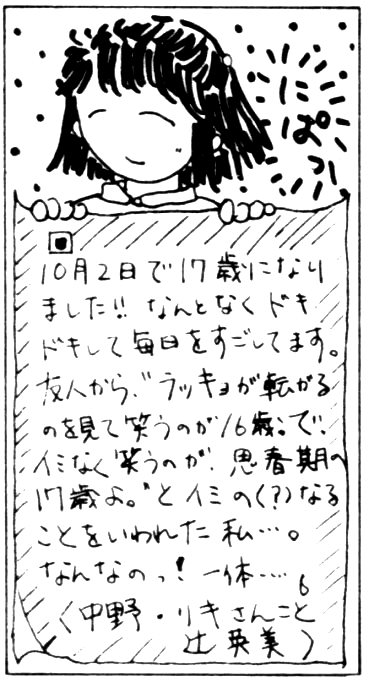 にぱっ
10月2日で17歳になり
ました!! なんとなくドキ
ドキして毎日をすごしてます。
友人から、"ラッキョが転がる
のを見て笑うのが16歳。で、
イミなく笑うのが、思春期の
17歳よ。"とイミの(?)なる
ことをいわれた私…。
なんなのっ! 一体…。
(中野・リキさんこと
辻英美)